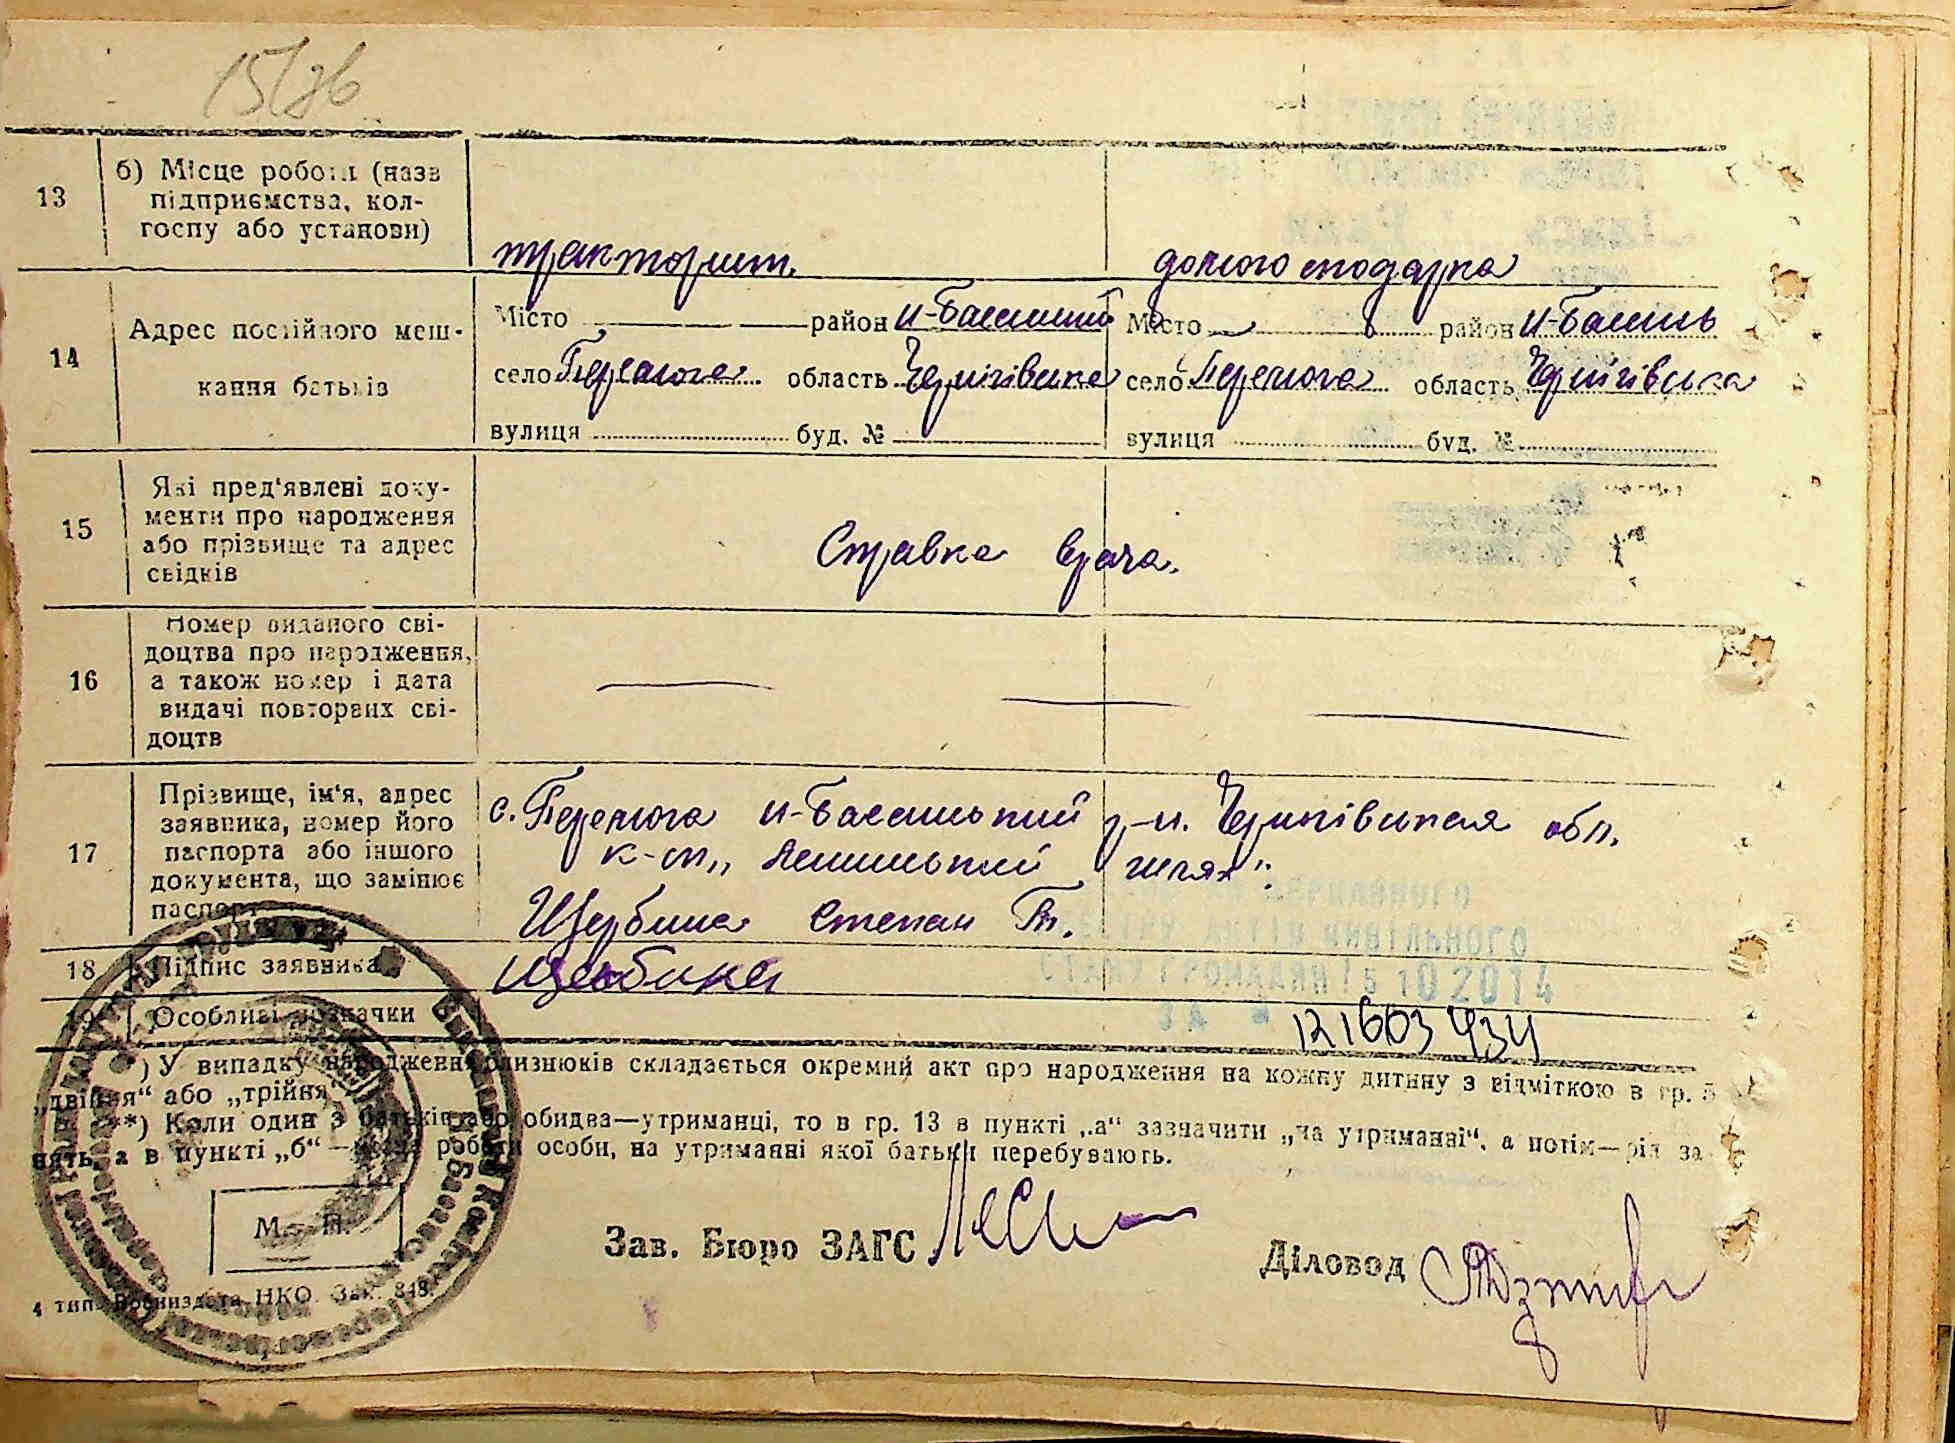 13
б) Місце роботи (назв
підприємства, кол-
госпу або установи)
тракторист.
домогосподарка
14
Адрес постійного меш-
кання батьків
Місто район Н-Басанський
село Перемога область Чернігівська
вулиця буд. №
Місто район Н-Басань
село Перемога область Чернігівська
вулиця буд. №
15
Які пред'явлені доку-
менти про народження
або прізвище та адрес
свідків
Справка врача.
16
Номер виданого сві-
доцтва про народження,
а також номер і дата
видачі повторних сві-
доцтв
17
Прізвище, ім'я, адрес
заявника, номер його
паспорта або іншого
документа, що замінює
паспорт
с. Перемога Н-Басанський р-н. Чернігівська обл.
к-сп „Ленинський шлях".
Щербина Степан
18
Підпис заявника
Щербина
Державного
реєстру актів цивільного
стану громадян 15 10 2014
за №
121603434
19
Особливі позначки
*) У випадку народження близнюків складається окремий акт про народження на кожну дитину з відміткою в гр. 5
„двійня“ або „трійня“
**) Коли один з батьків або обидва—утриманці, то в гр. 13 в пункті „а“ зазначити „на утриманні“, а потім—рід за-
нять, а в пункті „б“— роботи особи, на утриманні якої батьки перебувають.
М. П.
Зав. Бюро ЗАГС
Діловод
4 тип. Воениздата НКО. Зак. 848.